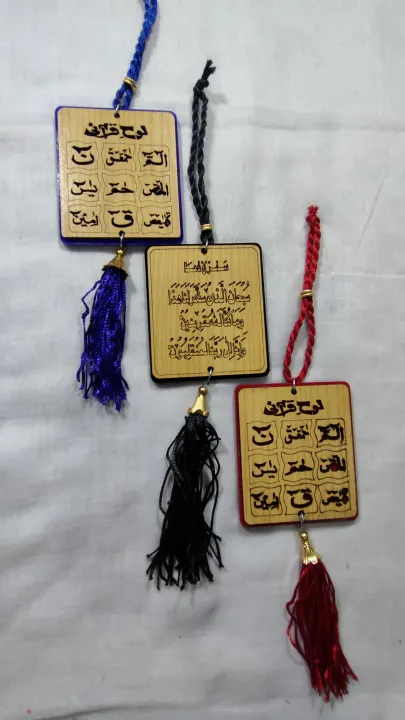 لوح قرآنی
الٓمّٓ حٰمٓعٓسٓقٓ نٓ
الٓمٓصٓ حٰمٓ یٰسٓ
كٓهٰيٰعٓصٓ قٓ اٰمین
سفر کی دعا
سُبْحَانَ الَّذِي سَخَّرَ لَنَا هَذَا
وَمَا كُنَّا لَهُ مُقْرِنِينَ
وَإِنَّا إِلَى رَبِّنَا لَمُنْقَلِبُونَ
لوح قرآنی
الٓمّٓ حٰمٓعٓسٓقٓ نٓ
الٓمٓصٓ حٰمٓ یٰسٓ
كٓهٰيٰعٓصٓ قٓ اٰمین